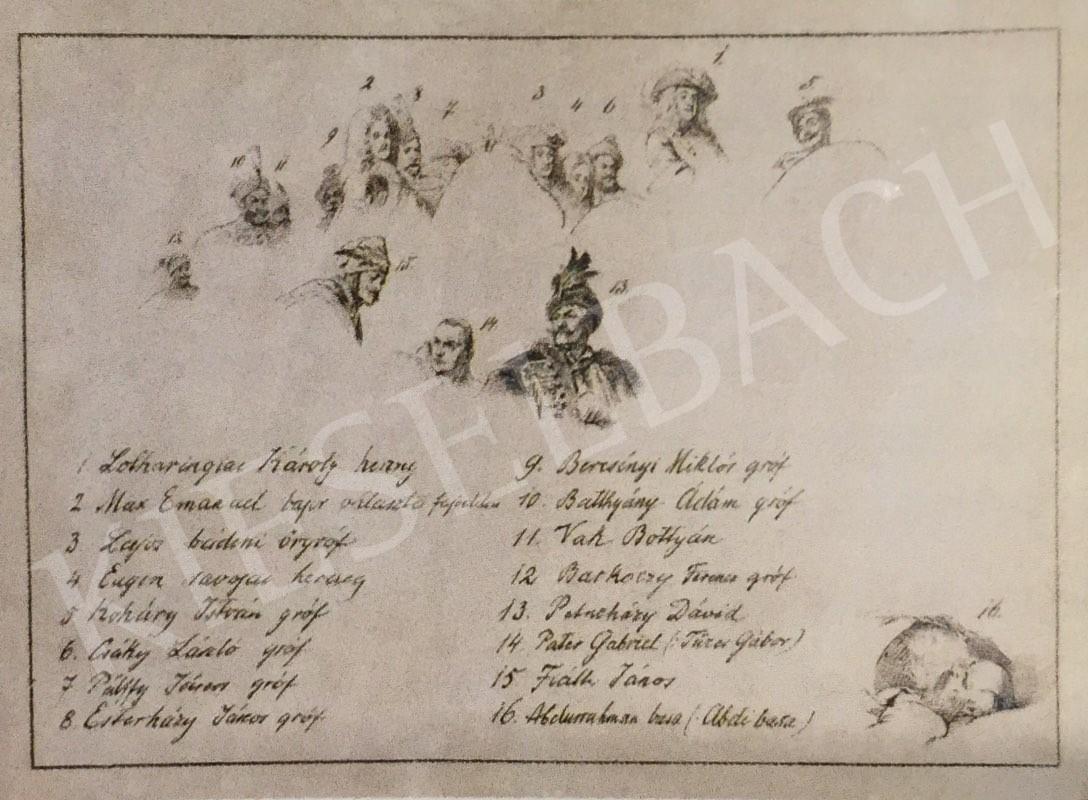 1
2
8
7
3
4
6
5
9
10
11
12
15
13
14
1 Lotharingiai Károly herceg
2 Max Emanuel bajor választó fejedelem
3 Lajos bádeni őrgróf
4 Eugen savoyai herceg
5 Koháry István gróf
6. Csáky László gróf
7 Pálffy János gróf
8 Esterházy János gróf
9. Bercsényi Miklós gróf
10. Batthyány Ádám gróf
11. Vak Bottyán
12 Barkoczy Ferenc gróf
13. Petneházy Dávid
14 Pater Gabriel (: Tüzes Gábor)
15 Fiáth János
16. Abdurrahman basa (: Abdi basa)
16.
KIESELBACH